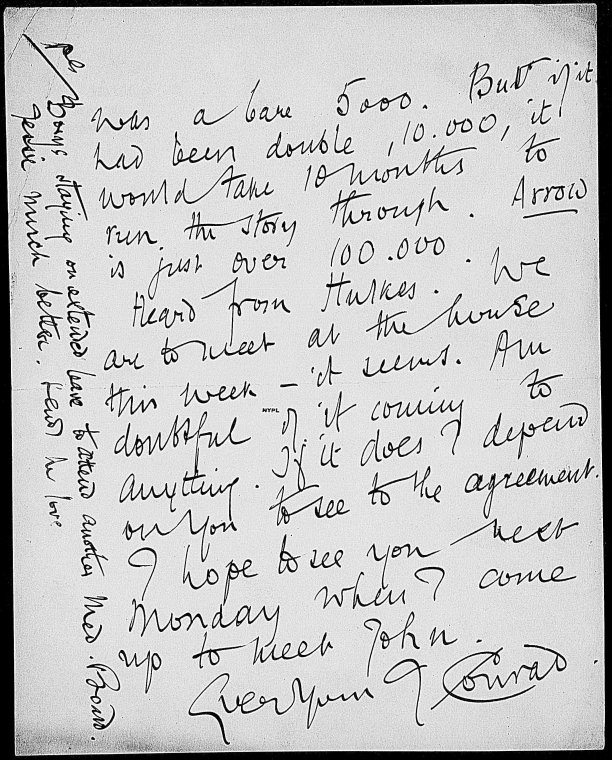 was a bare 5000. But if it
had been double, 10.000, it
would take 10 months to
run the story through. Arrow
is just over 100.000.
Heard from Hulkes. We
are to meet at the house
this week – it seems. Am
doubtful of it coming to
anything. If it does I depend
on you to see to the agreement.
I hope to see you next
Monday when I come
up to meet John.
Ever Yours J Conrad.
PS Borys staying on extended leave to attend another Med. Board.
Jessie much better. Sends her love
NYPL